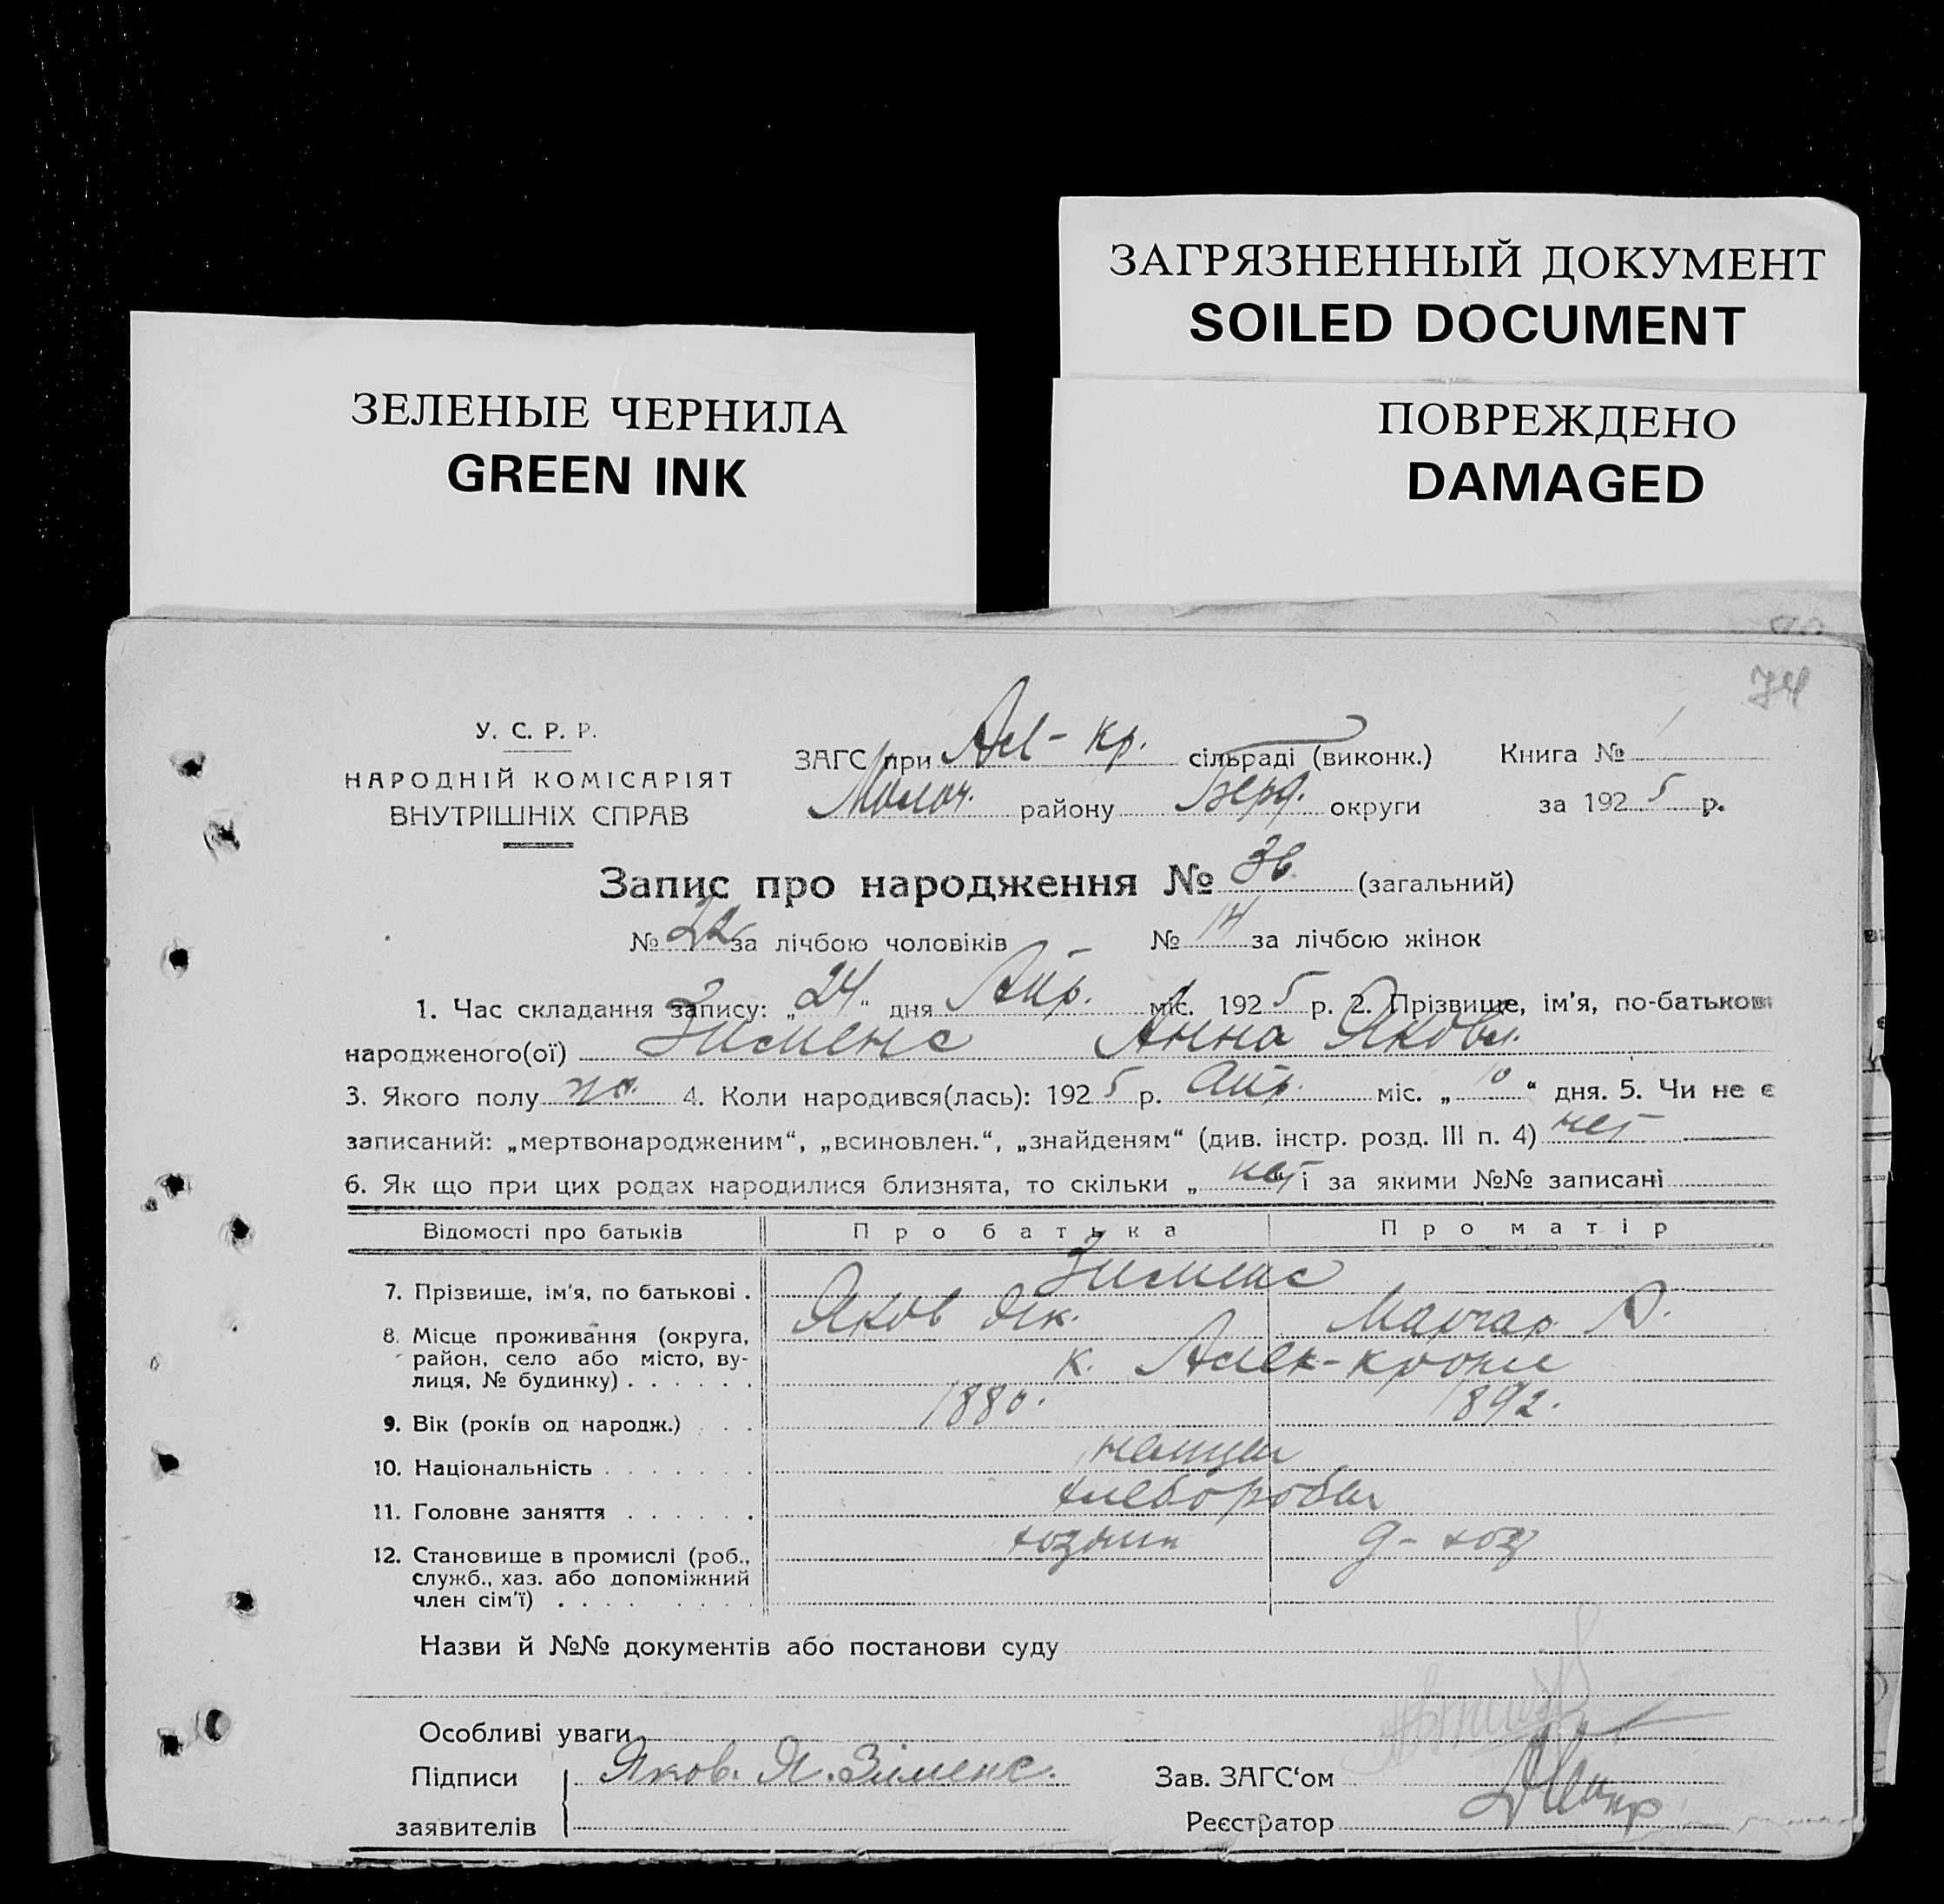 ЗАГРЯЗНЕННЫЙ ДОКУМЕНТ
SOILED DOCUMENT
ЗЕЛЕНЫЕ ЧЕРНИЛА
GREEN INK
ПОВРЕЖДЕНО
DAMAGED
74
У. С. Р. Р.
НАРОДНІЙ КОМІСАРІЯТ
ВНУТРІШНІХ СПРАВ
ЗАГС при Ал- Кр. сільраді (виконк.) Книга №
Молоч. району Берд. округи за 1925 р.
Запис про народження № 36 (загальний)
№ 22 за лічбою чоловіків № 14 за лічбою жінок
1. Час складання запису: „24“ дня Апр. міс. 1925 р. 2. Прізвище, ім'я, по-батькові
народженого(ої) Зименс Анна Яковл.
3. Якого полу ж. 4. Коли народився(лась): 1925 р. Апр. міс. „10“ дня. 5. Чи не є
записаний: „мертвонародженим“, „всиновлен.“, „знайденям“ (див. інстр. розд. III п. 4) нет
6. Як що при цих родах народилися близнята, то скільки „ нет і за якими №№ записані
Відомості про батьків Про батька Про матір
7. Прізвище, ім'я, по батькові . Зименс
Яков Як. Маргар. Я.
8. Місце проживання (округа,
район, село або місто, ву-
лиця, № будинку) . . . . . . к. Алек-кроне
9. Вік (років од народж.) . . . 1880. 1892.
10. Національність . . . . . . . немцы
11. Головне заняття . . . . . . хлеборобы
12. Становище в промислі (роб., хозяин д- хоз
служб., хаз. або допоміжний
член сім'ї) . . . . . . . .
Назви й №№ документів або постанови суду
Особливі уваги
Підписи Яков. Я. Зіменс. Зав. ЗАГС‘ом
заявителів Реєстратор